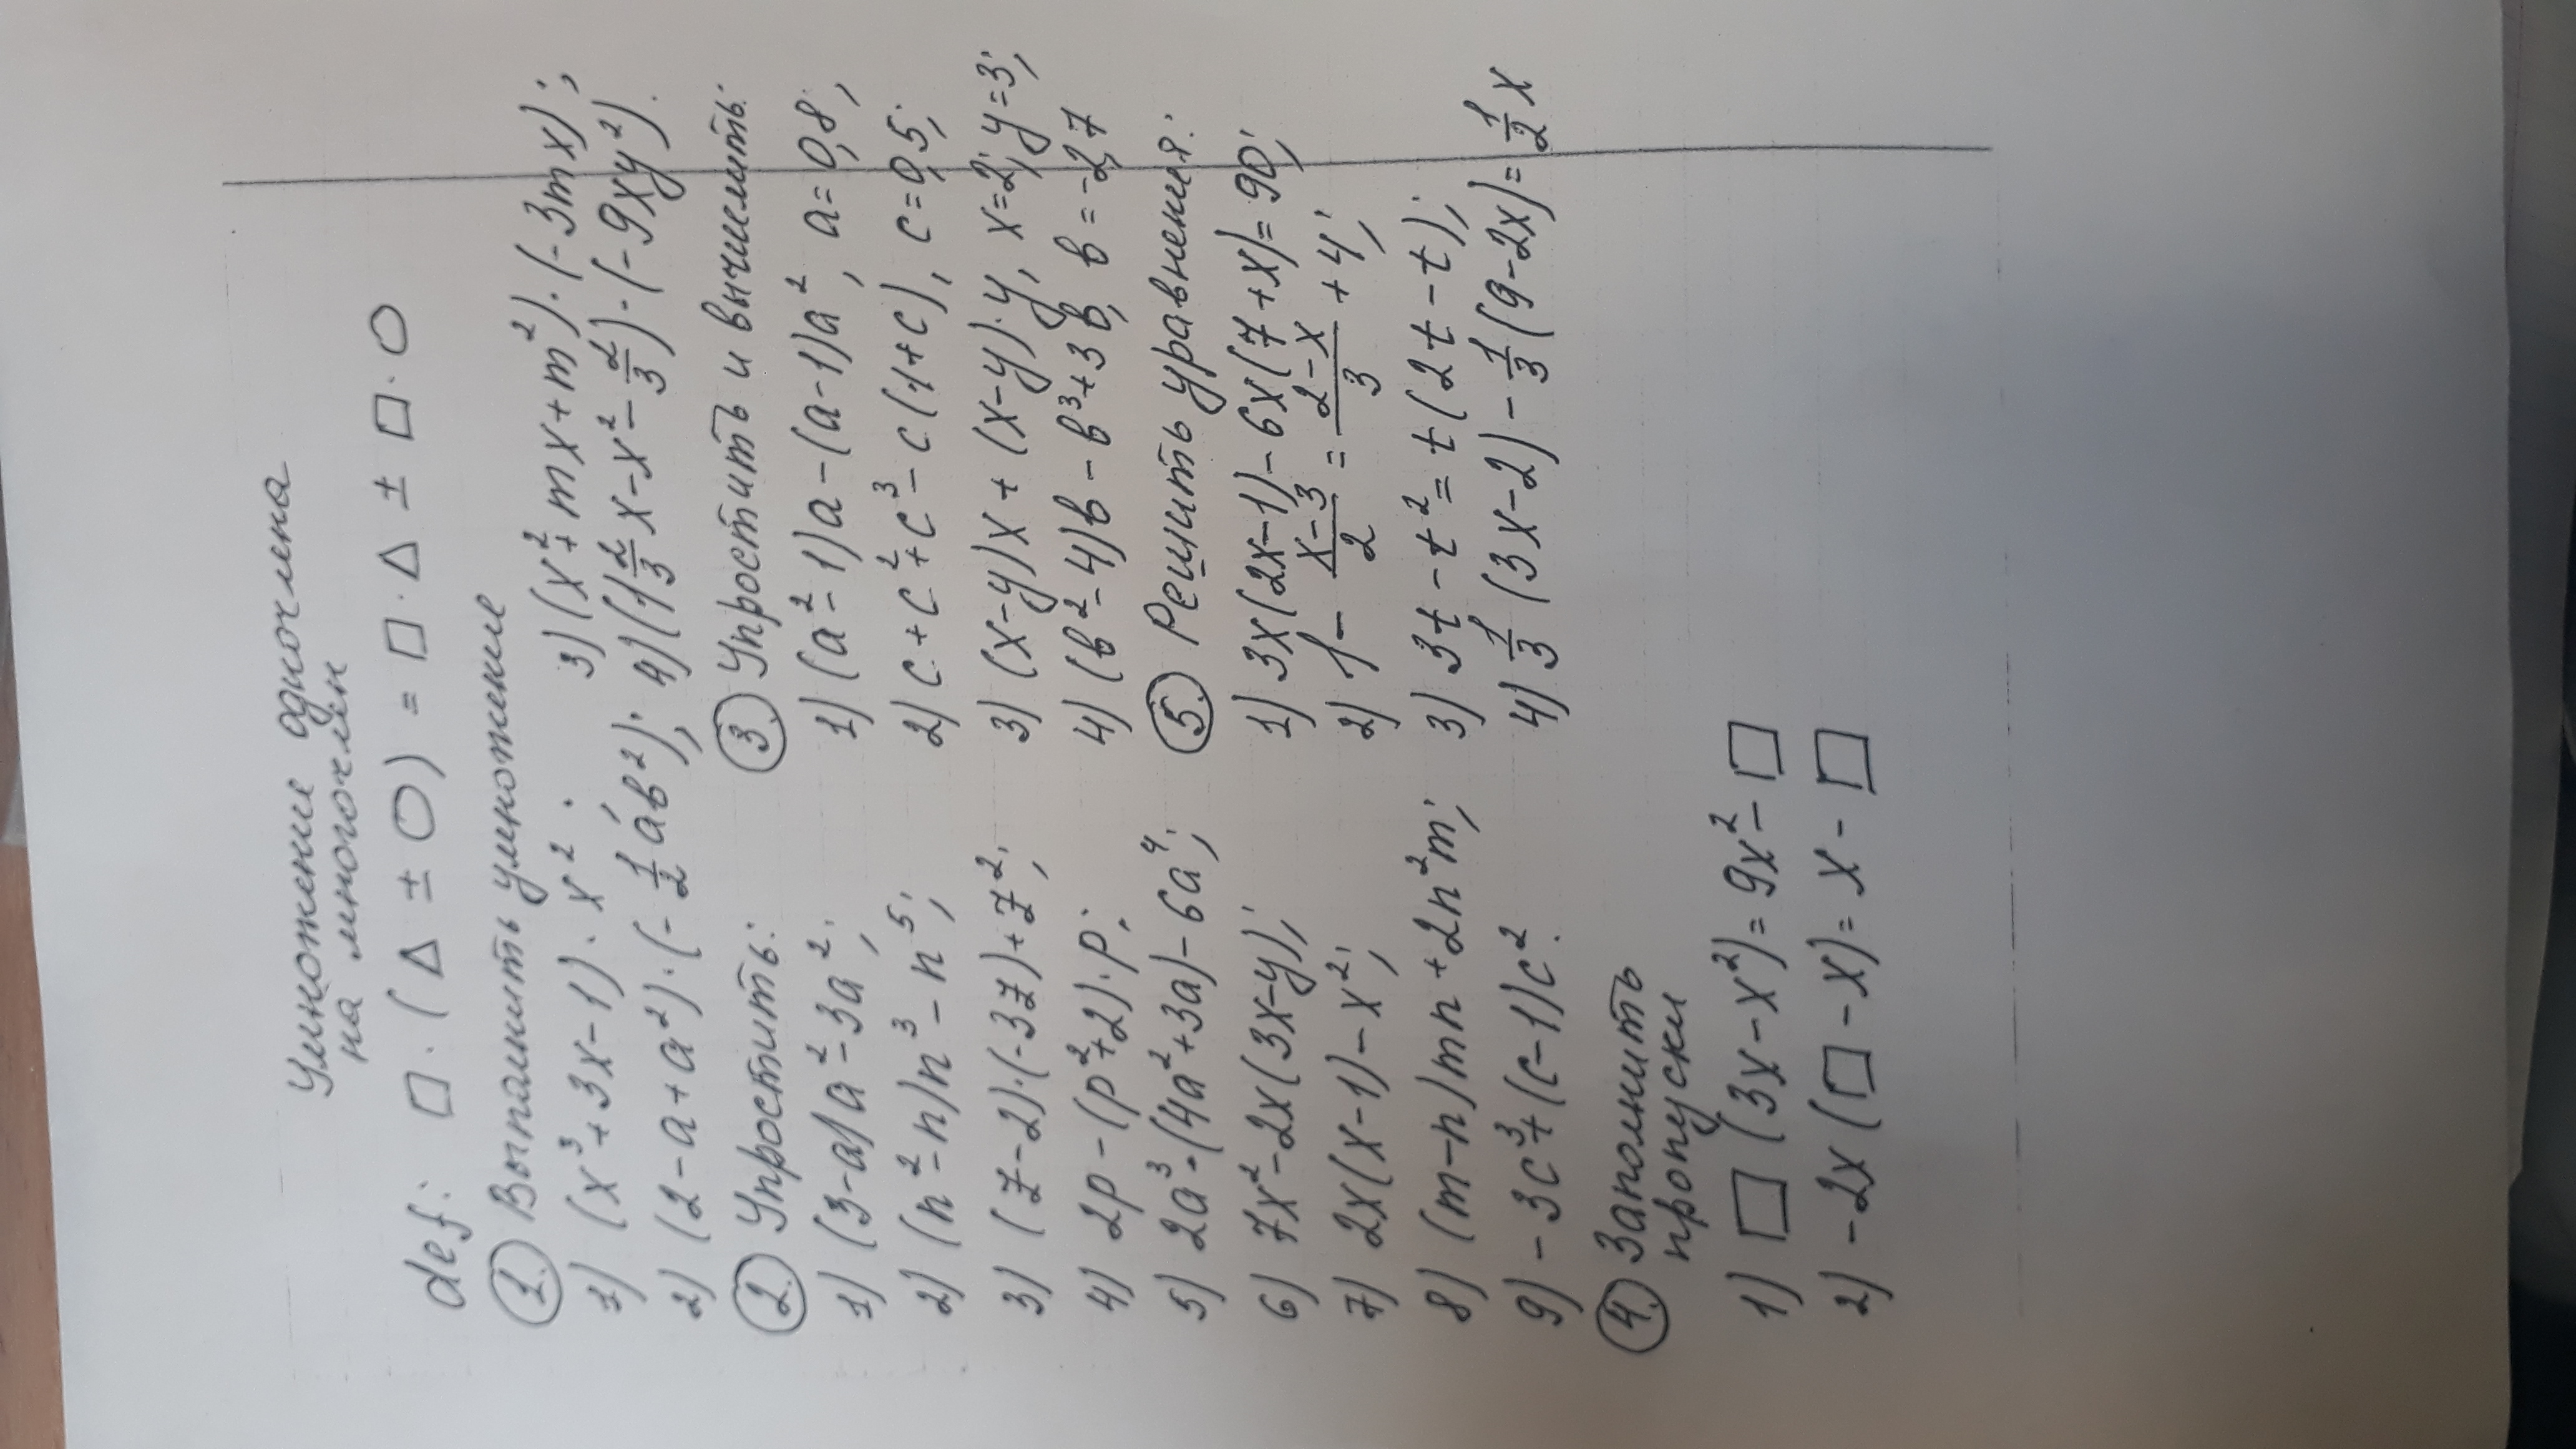 Умножение одночлена
на многочлен
def: □ · (Δ ± ○) = □ · Δ ± □ · ○
1. Выполнить умножение
1) (x³+3x-1) · x² ;
2) (2-a+a²)·(-1/2 ab²);
3) (x²+mx+m²)·(-3mx);
4) (1 2/3 x-x²-2/3)·(-9xy²).
2. Упростить:
1) (3-a)a²-3a²;
2) (n²-n)n³-n⁵;
3) (z-2)·(-3z)+z²;
4) 2p-(p²+2)·p;
5) 2a³·(4a²+3a)-6a⁴;
6) 7x²-2x(3x-y);
7) 2x(x-1)-x²;
8) (m-n)mn+2n²m;
9) -3c³+(c-1)c².
3. Упростить и вычислить:
1) (a²-1)a-(a-1)a², a=0,8;
2) c+c²+c³-c(1+c), c=0,5;
3) (x-y)x+(x-y)·y, x=2; y=3;
4) (b²-4)b-b³+3b, b=-2,7
4. Заполнить
пропуски
1) □(3x-x²)=9x²-□
2) -2x(□-x)=x-□
5. Решить уравнения:
1) 3x(2x-1)-6x(7+x)=90;
2) 1-(x-3)/2=(2-x)/3+4;
3) 3t-t²=t(2t-t);
4) 1/3(3x-2)-1/3(9-2x)=1/2x